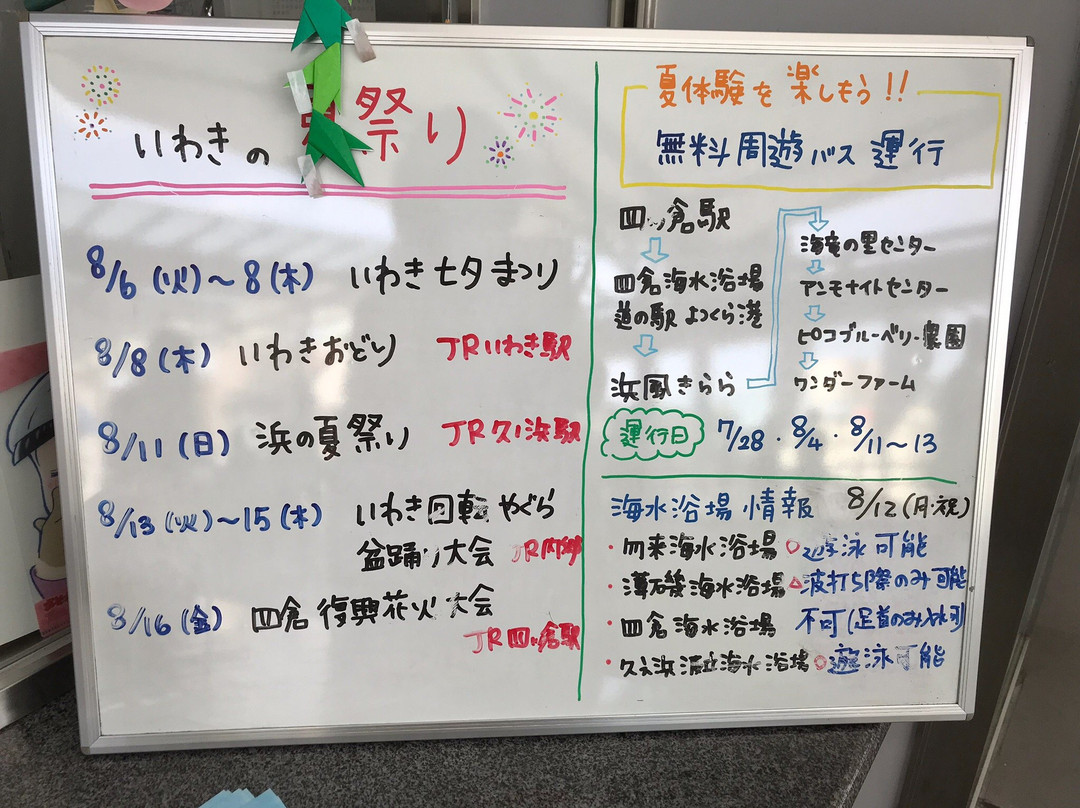 いわきの 夏祭り
8/6(火)～8(木) いわき七夕まつり
8/8(木) いわきおどり JRいわき駅
8/11(日) 浜の夏祭り JR久ノ浜駅
8/13(火)～15(木) いわき回転やぐら
盆踊り大会 JR内郷
8/16(金) 四倉復興花火大会
JR四ッ倉駅
夏体験を楽しもう!!
無料周遊バス運行
四ッ倉駅
四倉海水浴場
道の駅よつくら港
浜風きらら
海竜の里センター
アンモナイトセンター
ピコブルーベリー農園
ワンダーファーム
運行日 7/28・8/4・8/11～13
海水浴場情報 8/12(月・祝)
・勿来海水浴場 ○遊泳可能
・薄磯海水浴場 △波打ち際のみ可能
・四倉海水浴場 不可(足首のみ入水可)
・久之浜波立海水浴場 ○遊泳可能